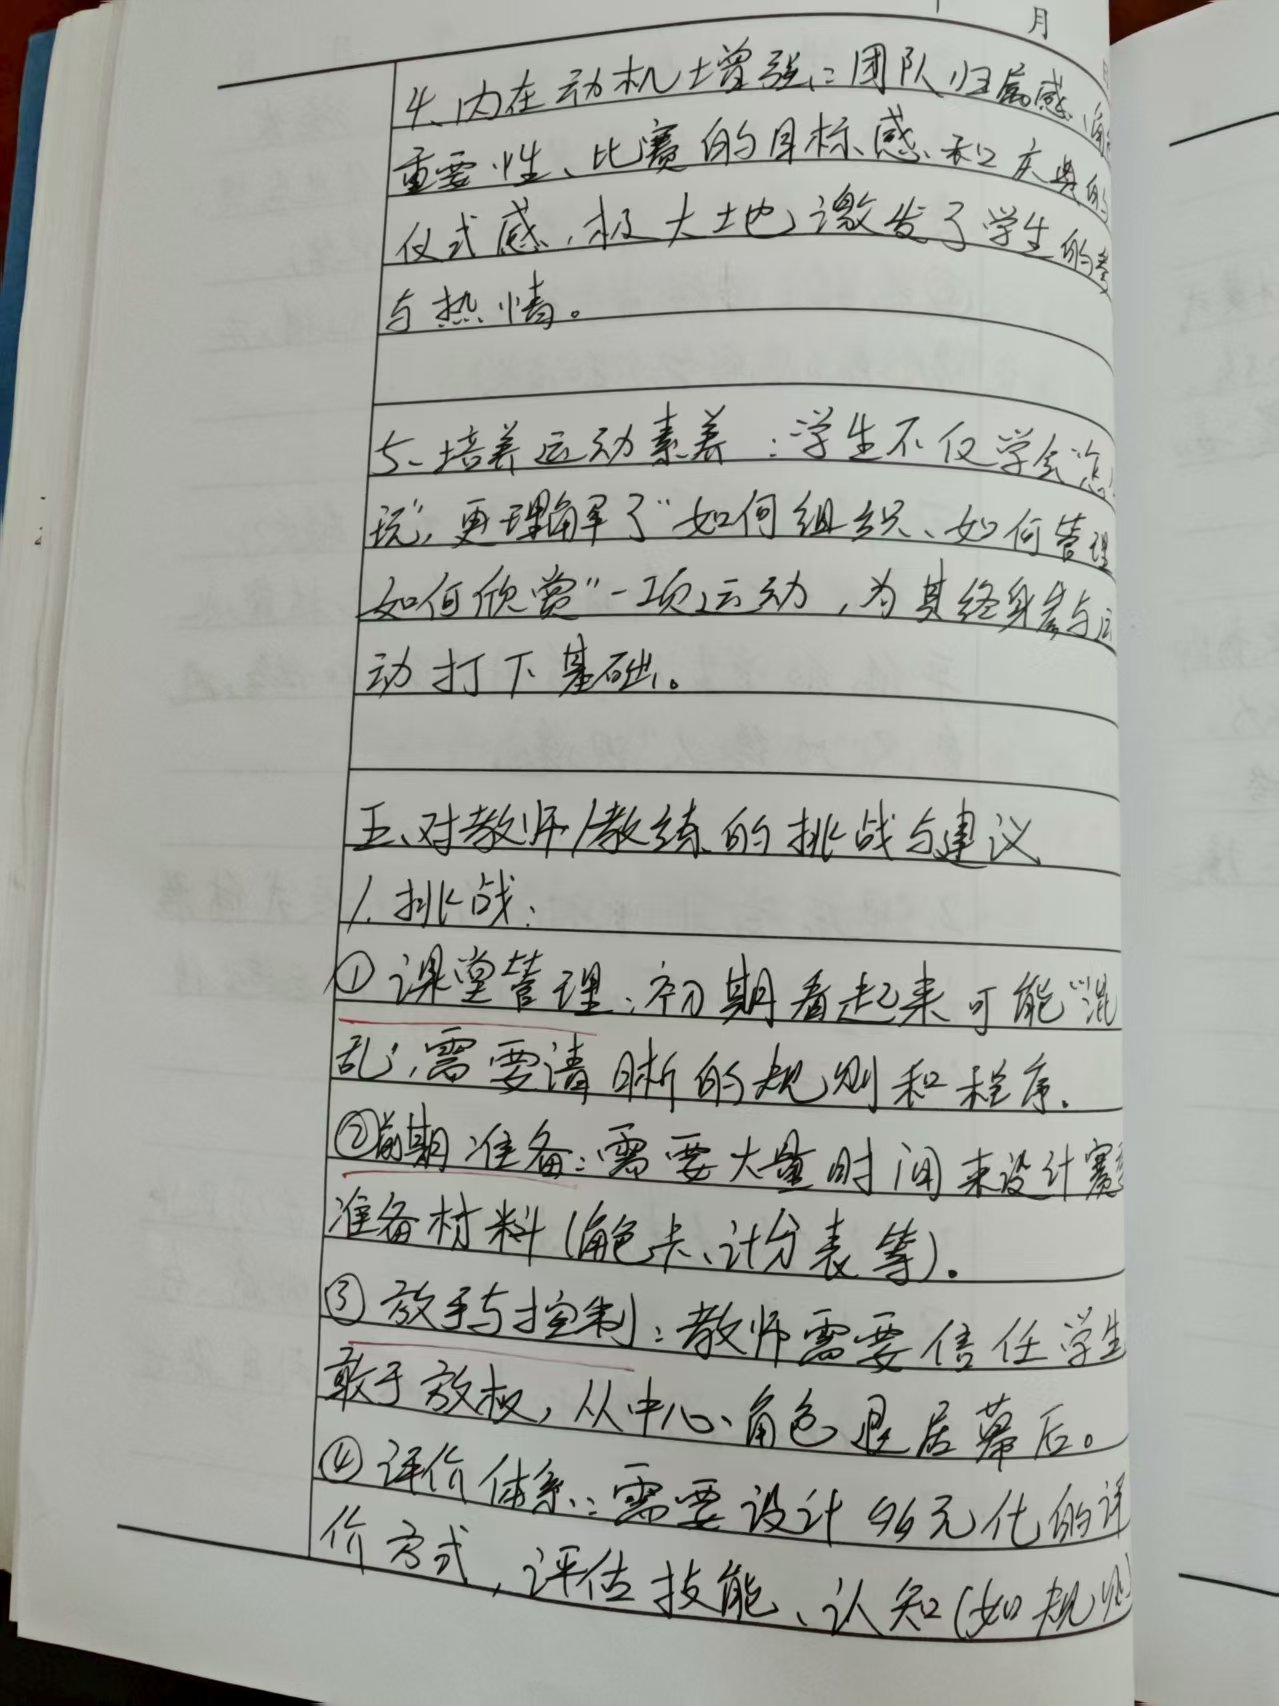 月
4、内在动机增强：团队归属感、角
重要性、比赛的目标感和庆典的
仪式感，极大地激发了学生的参
与热情。
5、培养运动素养：学生不仅学会"怎
玩"，更理解了"如何组织、如何管理
如何欣赏"一项运动，为其终身参与运
动打下基础。
五、对教师/教练的挑战与建议
1. 挑战：
①课堂管理：初期看起来可能"混
乱"，需要清晰的规则和程序.
②前期准备：需要大量时间来设计赛季
准备材料（角色卡、计分表等）。
③放手与控制：教师需要信任学生
敢于放权，从中心角色退居幕后。
④评价体系：需要设计多元化的评
价方式，评估技能、认知（如规则